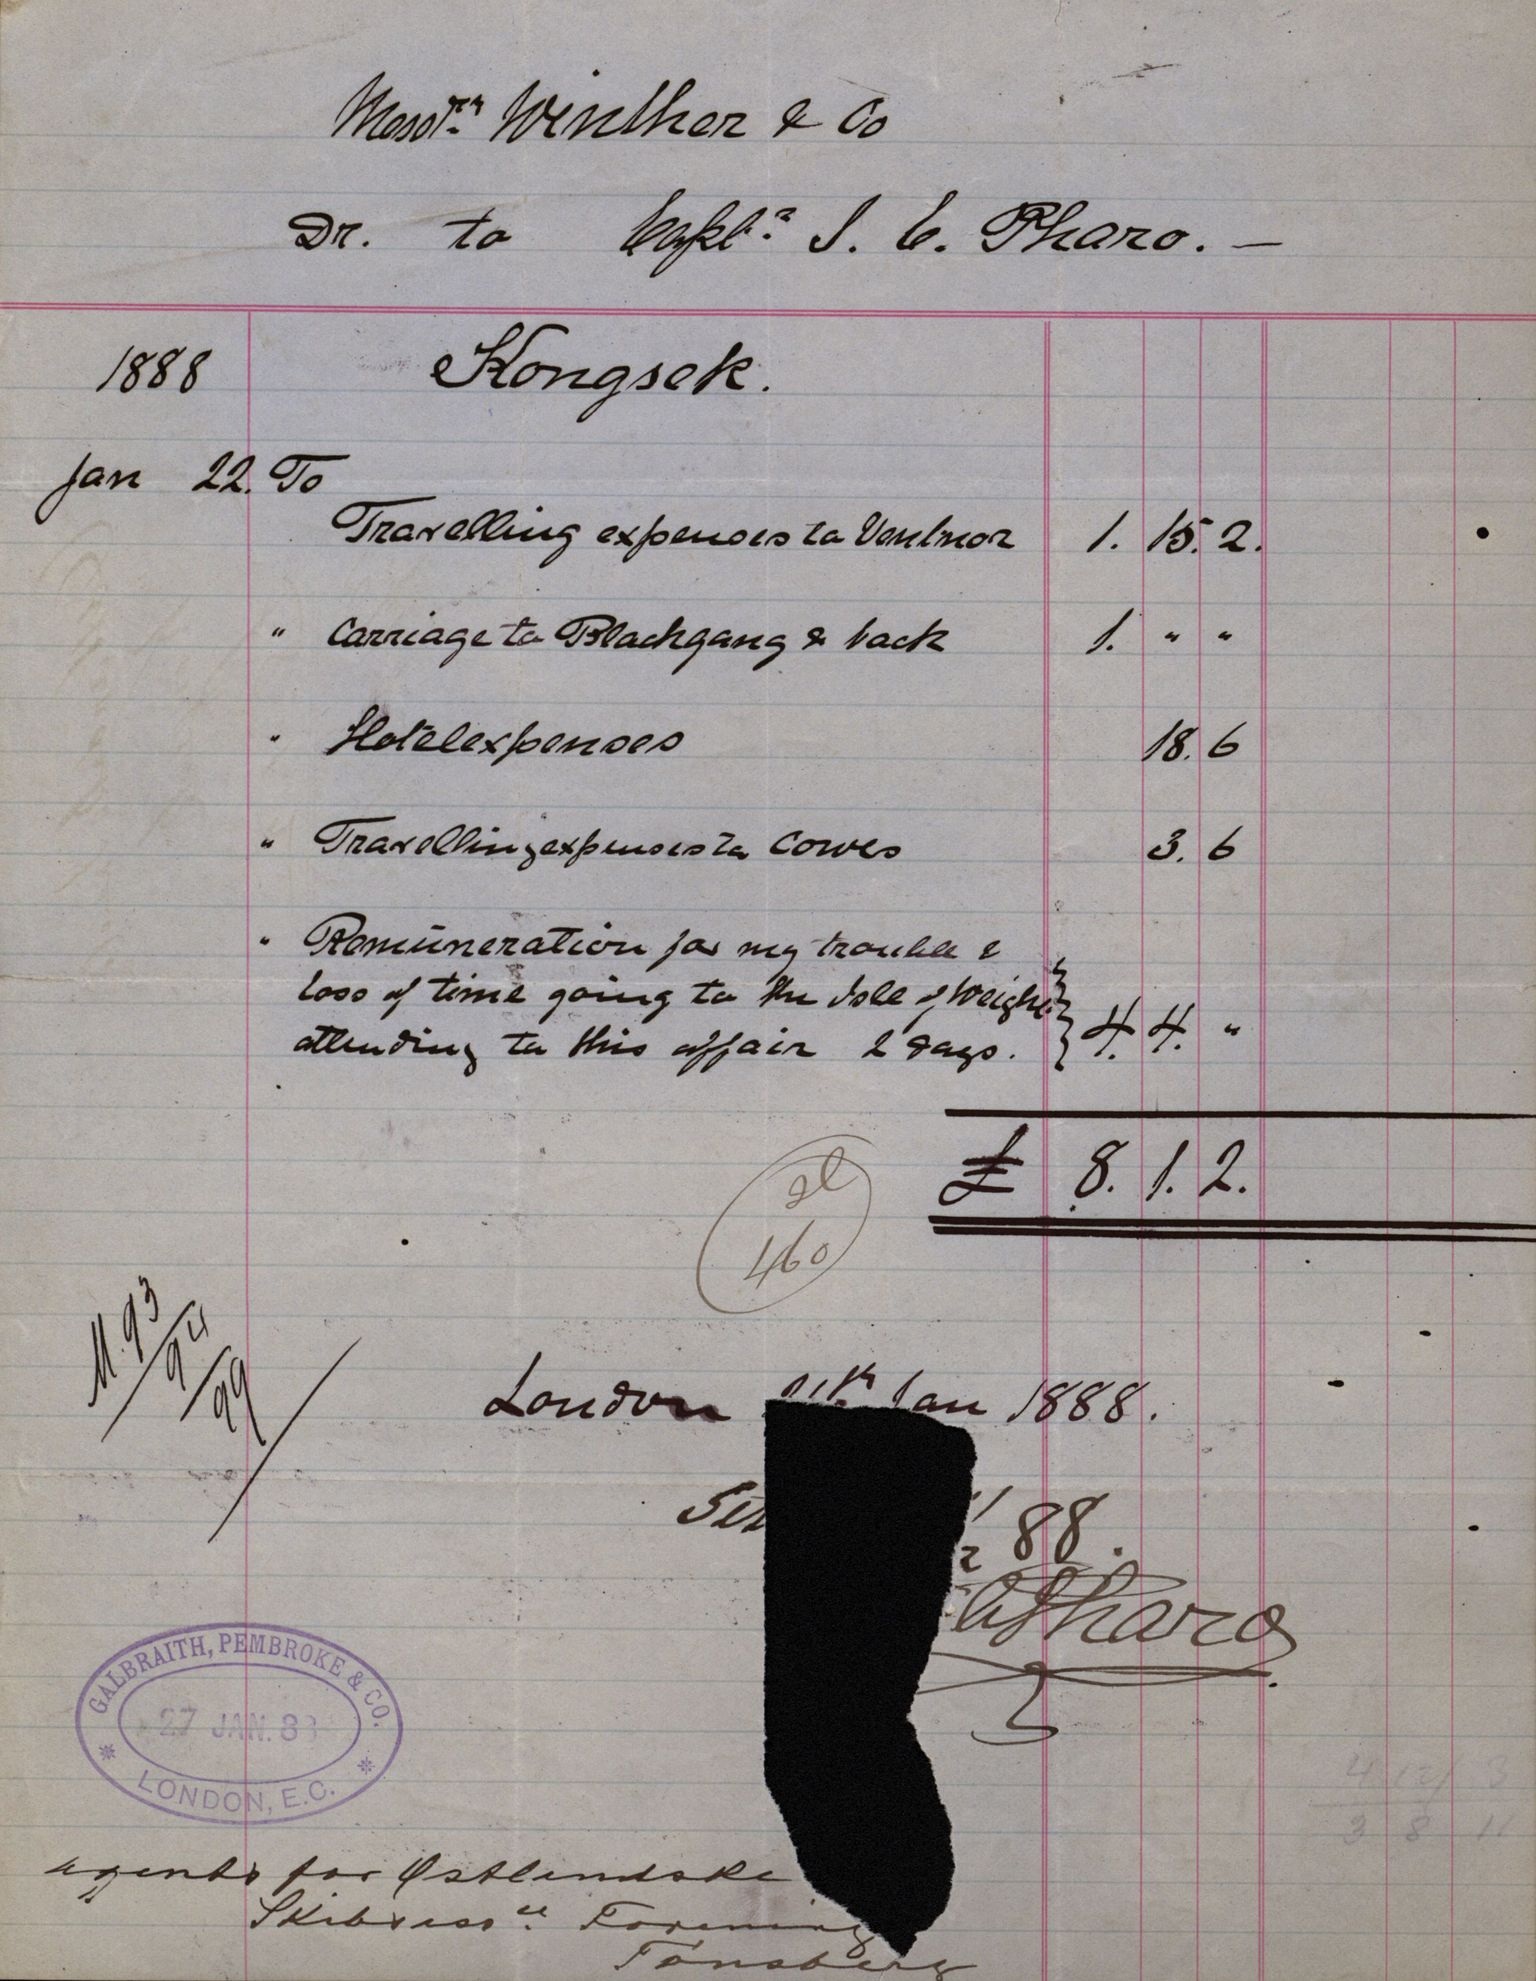 Messrs Winther & Co
Dr. to Captn I. C. Pharo. —
1888 Kongsek.
Jan 22. To
Travelling expenses to Ventnor 1. 15. 2.
" Carriage to Blackgang & back 1. " "
" Hotelexpenses 18. 6
" Travellingexpenses to Cowes 3. 6
" Remuneration for my trouble &
loss of time going to the Isle of Weight
attending to this affair 2 days. 4. 4. "
£ 8. 1. 2.
460
M. 93/94/99
London Jan 1888.
88.
Pharo
GALBRAITH, PEMBROKE & CO.
27 JAN. 88
LONDON, E.C.
4 12 3
3 8 11
Agents for Østlandske
Skibsass Forening
Tønsberg